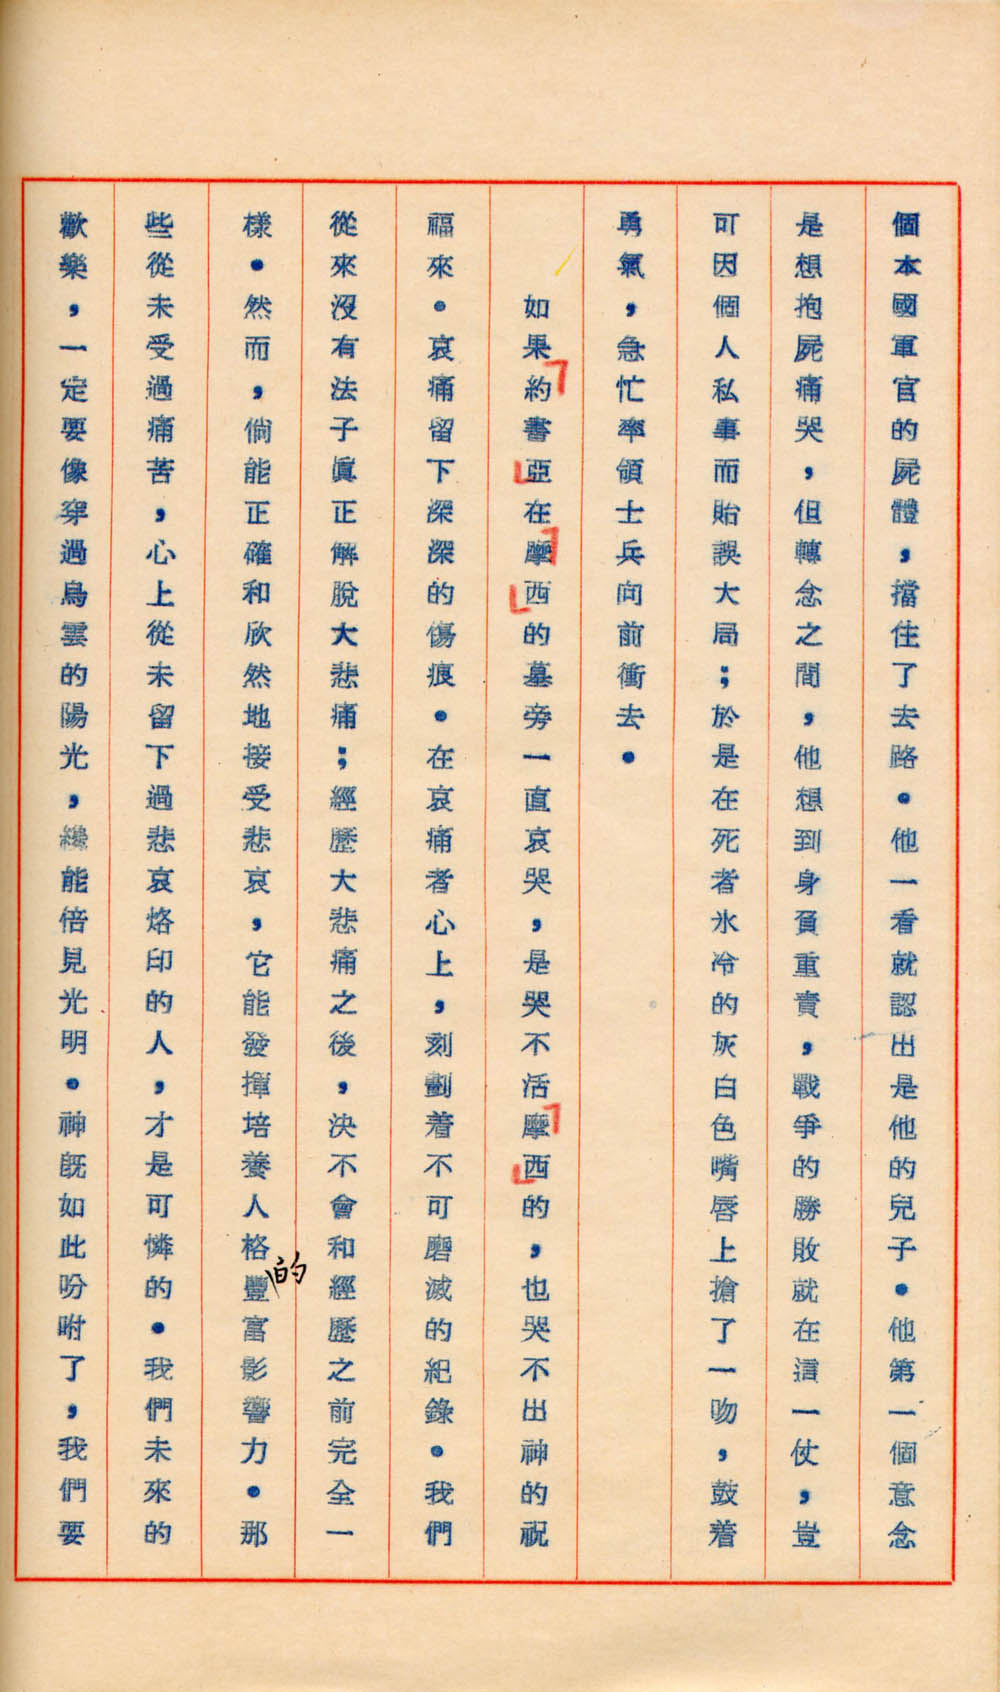 個本國軍官的屍體，擋住了去路。他一看就認出是他的兒子。他第一個意念
是想抱屍痛哭，但轉念之間，他想到身負重責，戰爭的勝敗就在這一仗，豈
可因個人私事而貽誤大局；於是在死者氷冷的灰白色嘴唇上搶了一吻，鼓着
勇氣，急忙率領士兵向前衝去。
如果「約書亞」在「摩西」的墓旁一直哀哭，是哭不活「摩西」的，也哭不出神的祝
福來。哀痛留下深深的傷痕。在哀痛者心上，刻劃着不可磨滅的紀錄。我們
從來沒有法子眞正解脫大悲痛；經歷大悲痛之後，決不會和經歷之前完全一
樣。然而，倘能正確和欣然地接受悲哀，它能發揮培養人格的豐富影響力。那
些從未受過痛苦，心上從未留下過悲哀烙印的人，才是可憐的。我們未來的
歡樂，一定要像穿過烏雲的陽光，纔能倍見光明。神旣如此吩咐了，我們要